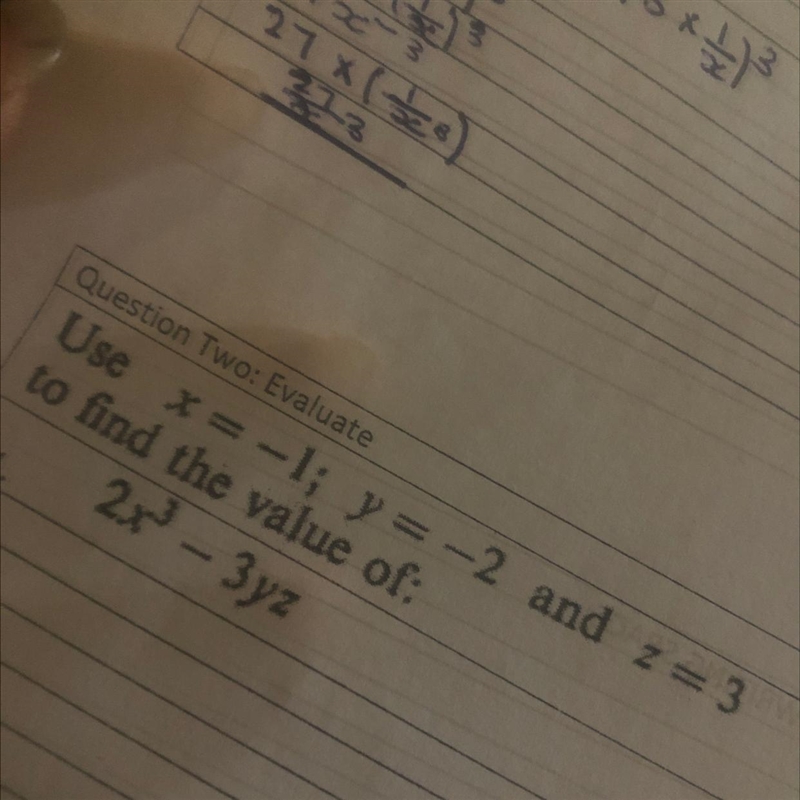 27 × (1/x³)
27/x³
Question Two: Evaluate
Use x = −1; y = −2 and z = 3
to find the value of:
2x³ − 3yz